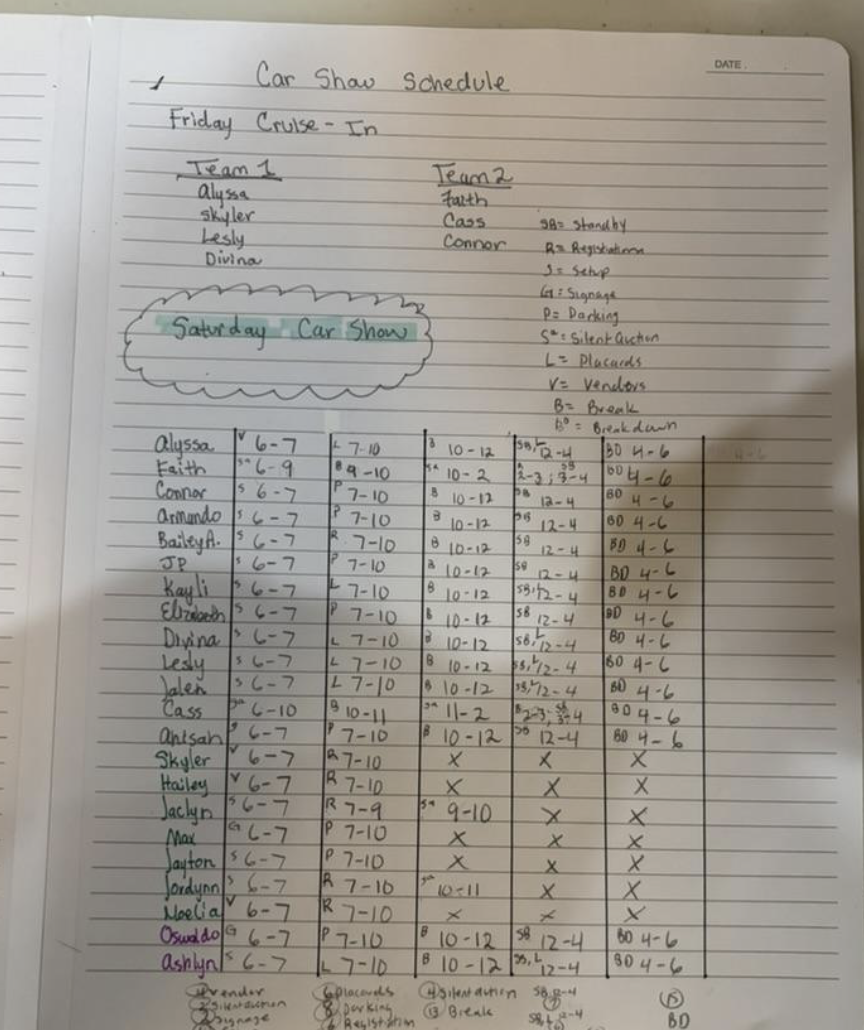 DATE.
Car Show Schedule
Friday Cruise-In
Team 1 Team 2
Alyssa Faith
Skyler Cass SB= Standby
Lesly Connor R= Registration
Divina S= Setup
G= Signage
P= Parking
Saturday Car Show Sᵃ= Silent Auction
L= Placards
V= Vendors
B= Break
BD= Breakdown
Alyssa V 6-7 L 7-10 B 10-12 SB,L 12-4 BD 4-6
Faith Sᵃ 6-9 B 9-10 Sᵃ 10-2 2-3; SB 3-4 BD 4-6
Connor S 6-7 P 7-10 B 10-12 SB 12-4 BD 4-6
Armando S 6-7 P 7-10 B 10-12 SB 12-4 BD 4-6
Bailey A. S 6-7 R 7-10 B 10-12 SB 12-4 BD 4-6
JP S 6-7 P 7-10 B 10-12 SB 12-4 BD 4-6
Kayli S 6-7 L 7-10 B 10-12 SB,L 12-4 BD 4-6
Elizabeth S 6-7 P 7-10 B 10-12 SB 12-4 BD 4-6
Divina S 6-7 L 7-10 B 10-12 SB,L 12-4 BD 4-6
Lesly S 6-7 L 7-10 B 10-12 SB,L 12-4 BD 4-6
Jalen S 6-7 L 7-10 B 10-12 SB,L 12-4 BD 4-6
Cass Sᵃ 6-10 B 10-11 Sᵃ 11-2 B 2-3; SB 3-4 BD 4-6
Antsah S 6-7 P 7-10 B 10-12 SB 12-4 BD 4-6
Skyler V 6-7 R 7-10 X X X
Hailey V 6-7 R 7-10 X X X
Jaclyn S 6-7 R 7-9 Sᵃ 9-10 X X
Max G 6-7 P 7-10 X X X
Jayton S 6-7 P 7-10 X X X
Jordynn S 6-7 R 7-10 Sᵃ 10-11 X X
Noelia V 6-7 R 7-10 X X X
Oswaldo G 6-7 P 7-10 B 10-12 SB 12-4 BD 4-6
Ashlyn S 6-7 L 7-10 B 10-12 SB,L 12-4 BD 4-6
4 vendor 6 placards 4 silent auction SB 12-4 15
2 silent auction 8 parking 13 Break BD
2 signage Registration SB,L 12-4